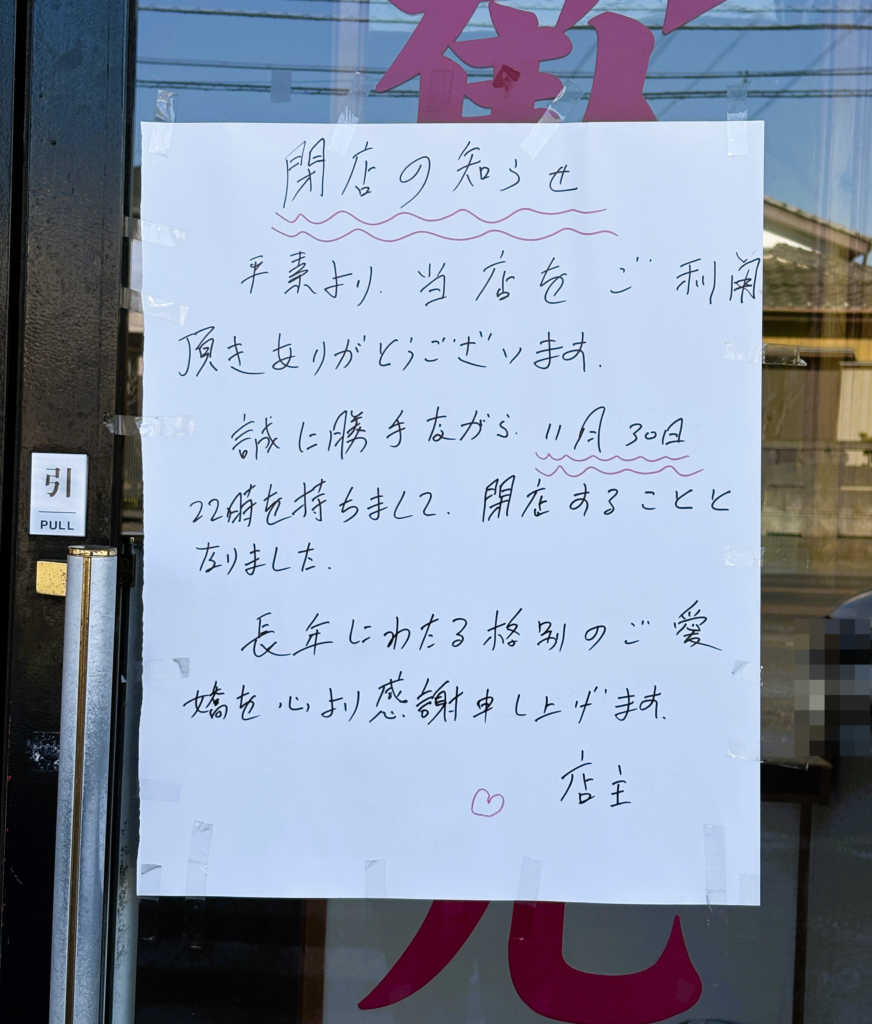 閉店の知らせ
平素より、当店をご利用
頂きありがとうございます。
誠に勝手ながら、11月30日
22時を持ちまして、閉店することと
なりました。
長年にわたる格別のご愛
嬌を心より感謝申し上げます。
店主
引
PULL